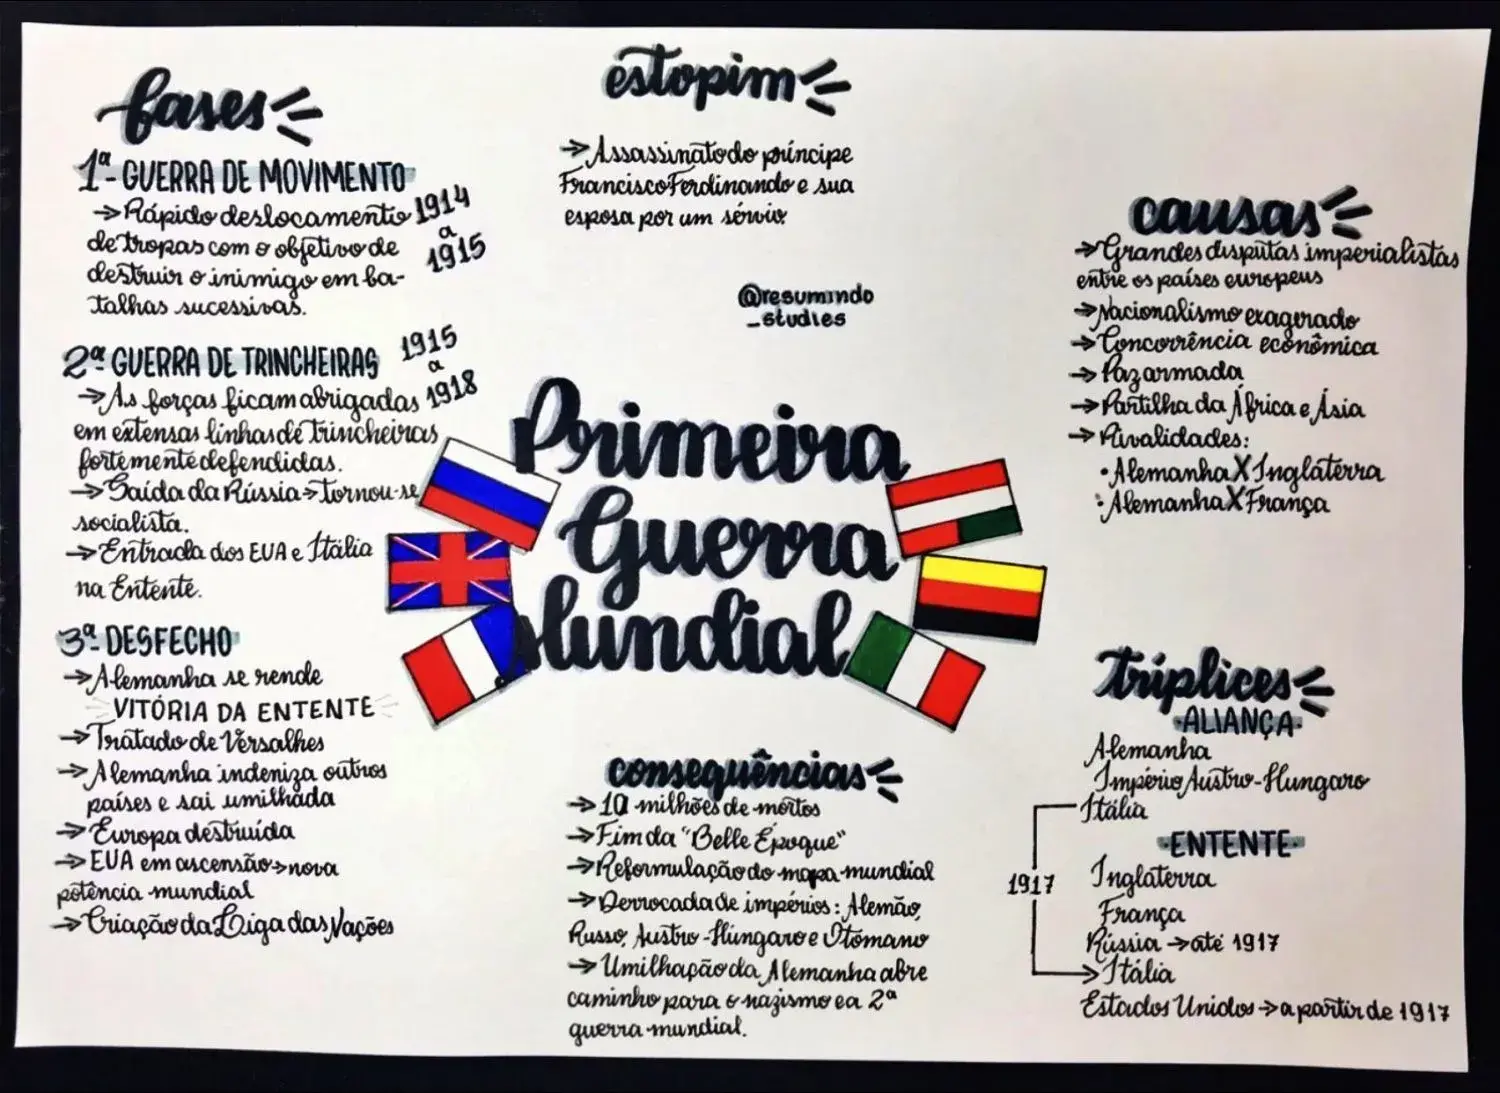 fases
1ª- GUERRA DE MOVIMENTO
→Rápido deslocamento
de tropas com o objetivo de
destruir o inimigo em ba-
talhas sucessivas.
1914
a
1915
2ª- GUERRA DE TRINCHEIRAS
→As forças ficam abrigadas
em extensas linhas de trincheiras
fortemente defendidas.
→Saída da Rússia→tornou-se
socialista.
→Entrada dos EUA e Itália
na Entente.
1915
a
1918
3ª- DESFECHO
→Alemanha se rende
VITÓRIA DA ENTENTE
→Tratado de Versalhes
→Alemanha indeniza outros
países e sai umilhada
→Europa destruída
→EUA em ascensão→nova
potência mundial
→Criação da Liga das Nações
estopim
→Assassinato do príncipe
Francisco Ferdinando e sua
esposa por um sérvio.
@resumindo
_studies
Primeira
Guerra
Mundial
consequências
→10 milhões de mortos
→Fim da "Belle Époque"
→Reformulação do mapa mundial
→Derrocada de impérios: Alemão,
Russo, Austro-Húngaro e Otomano
→Umilhação da Alemanha abre
caminho para o nazismo e a 2ª
guerra mundial.
causas
→Grandes disputas imperialistas
entre os países europeus
→Nacionalismo exagerado
→Concorrência econômica
→Paz armada
→Partilha da África e Ásia
→Rivalidades:
•Alemanha X Inglaterra
•Alemanha X França
tríplices
·ALIANÇA·
Alemanha
Império Austro-Hungaro
Itália
·ENTENTE·
Inglaterra
França
Rússia →até 1917
1917
→Itália
Estados Unidos →a partir de 1917